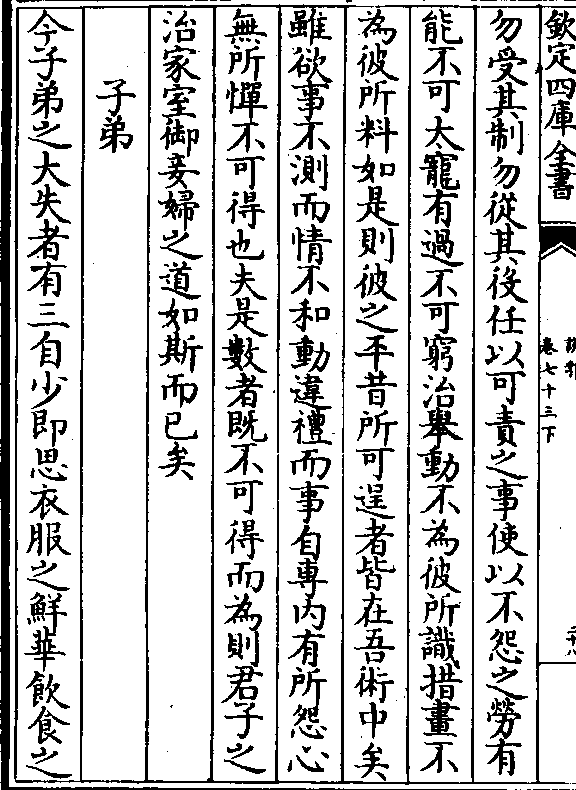 欽定四庫全書
說郛
卷七十三下
二十八
勿受其制勿從其役任以可責之事使以不怨之勞有
能不可太寵有過不可窮治舉動不為彼所識措畫不
為彼所料如是則彼之平昔所可逞者皆在吾術中矣
雖欲事不測而情不和動違禮而事自專内有所怨心
無所憚不可得也夫是數者既不可得而為則君子之
治家室御妾婦之道如斯而已矣
子弟
今子弟之大失者有三自少即思衣服之鮮華飲食之